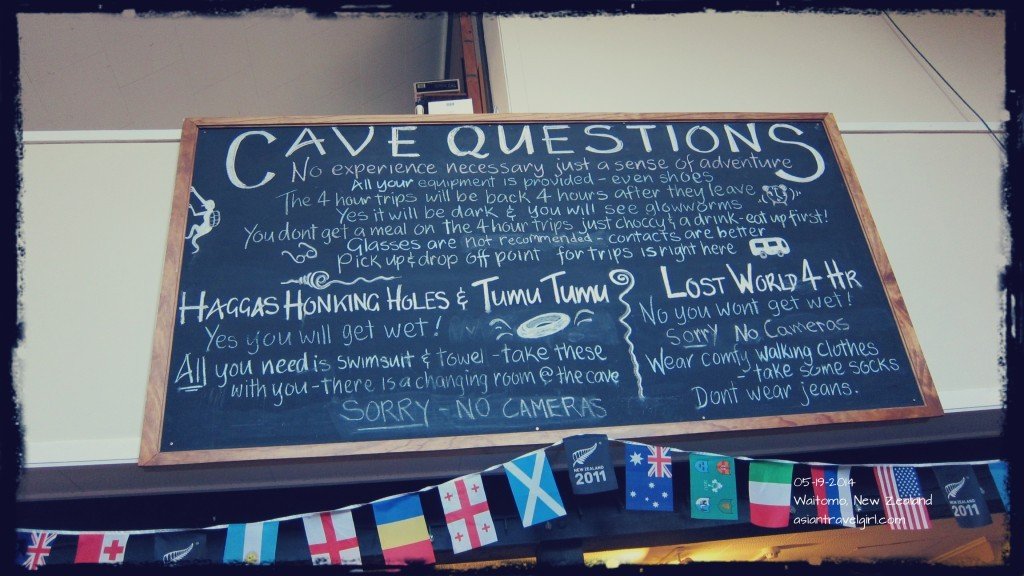 CAVE QUESTIONS
No experience necessary just a sense of adventure
All your equipment is provided - even shoes
The 4 hour trips will be back 4 hours after they leave
Yes it will be dark & you will see glowworms
You dont get a meal on the 4 hour trips just choccy & a drink - eat up first!
Glasses are not recommended - contacts are better
Pick up & drop off point for trips is right here
HAGGAS HONKING HOLES & TUMU TUMU
Yes you will get wet!
All you need is swimsuit & towel - take these
with you - there is a changing room @ the cave
SORRY - NO CAMERAS
LOST WORLD 4 HR
No you wont get wet!
Sorry No Cameras
Wear comfy walking clothes
take some socks
Dont wear jeans.
NEW ZEALAND
2011
NEW ZEALAND
2011
05-19-2014
Waitomo, New Zealand
asiantravelgirl.com